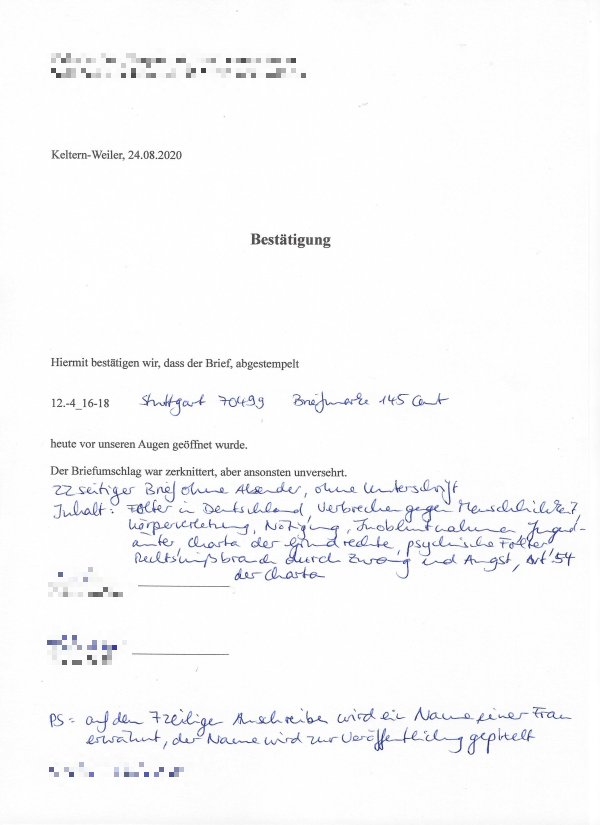 Keltern-Weiler, 24.08.2020
Bestätigung
Hiermit bestätigen wir, dass der Brief, abgestempelt
12.-4_16-18 Stuttgart 70499 Briefmarke 145 Cent
heute vor unseren Augen geöffnet wurde.
Der Briefumschlag war zerknittert, aber ansonsten unversehrt.
22 seitiger Brief ohne Absender, ohne Unterschrift
Inhalt: Folter in Deutschland, Verbrechen gegen Menschlichkeit,
Körperverletzung, Nötigung, Inobhutnahmen Jugend-
ämter Charta der Grundrechte, psychische Folter
Rechtsmißbrauch durch Zwang und Angst, Art. 54
der Charta
PS: auf dem 7zeiligen Anschreiben wird ein Name einer Frau
erwähnt, der Name wird zur Veröffentlichung gepixelt